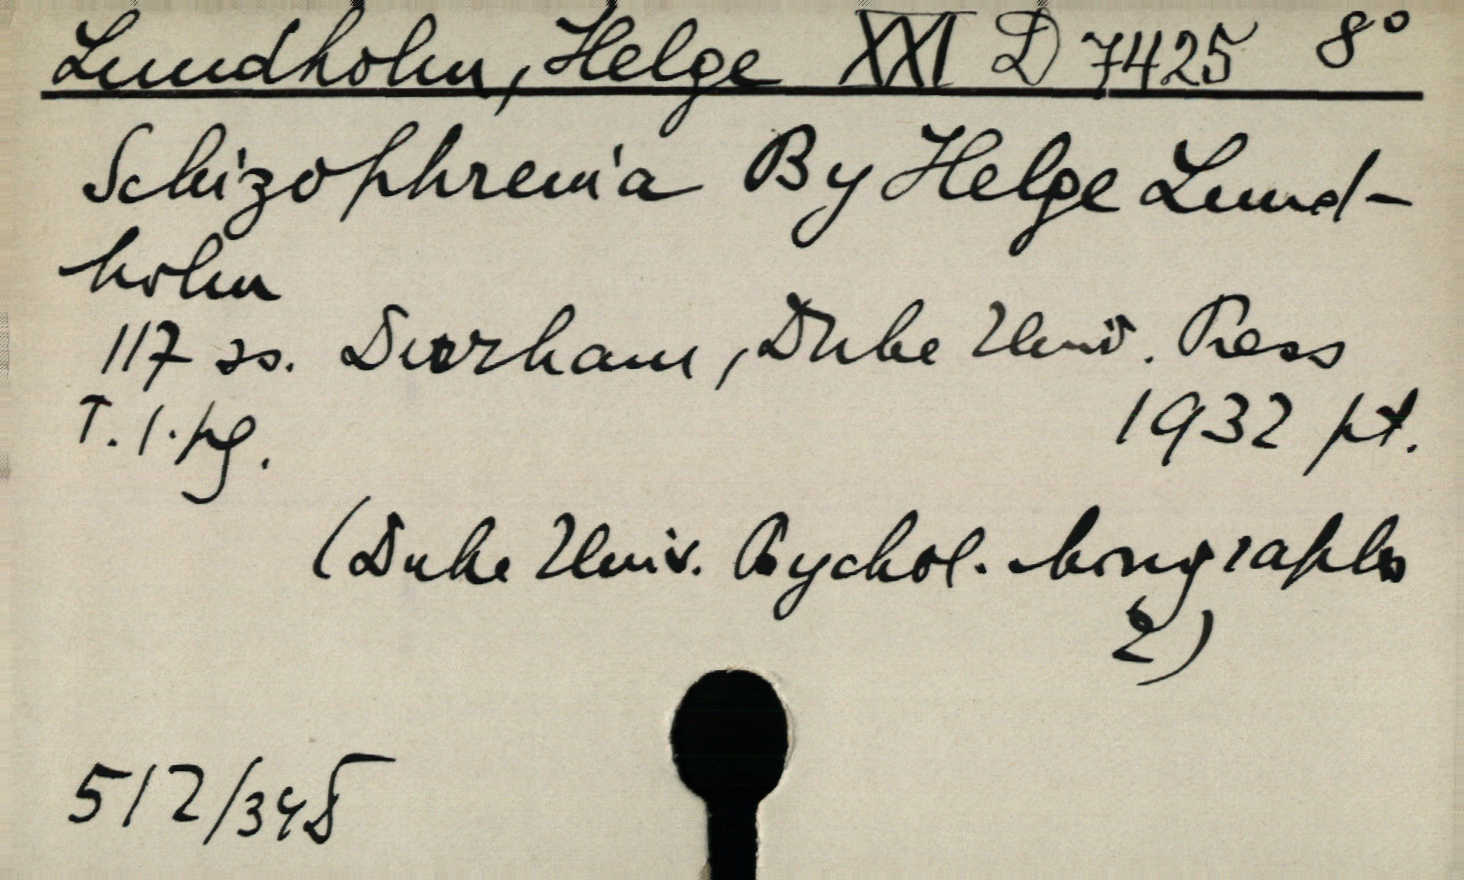 Lundholm, Helge XXI D 7425 8°
Schizophrenia By Helge Lund-
holm
117 ss. Durham, Duke Univ. Press
T. 1. pg. 1932 pt.
(Duke Univ. Psychol. monographs
2)
512/34